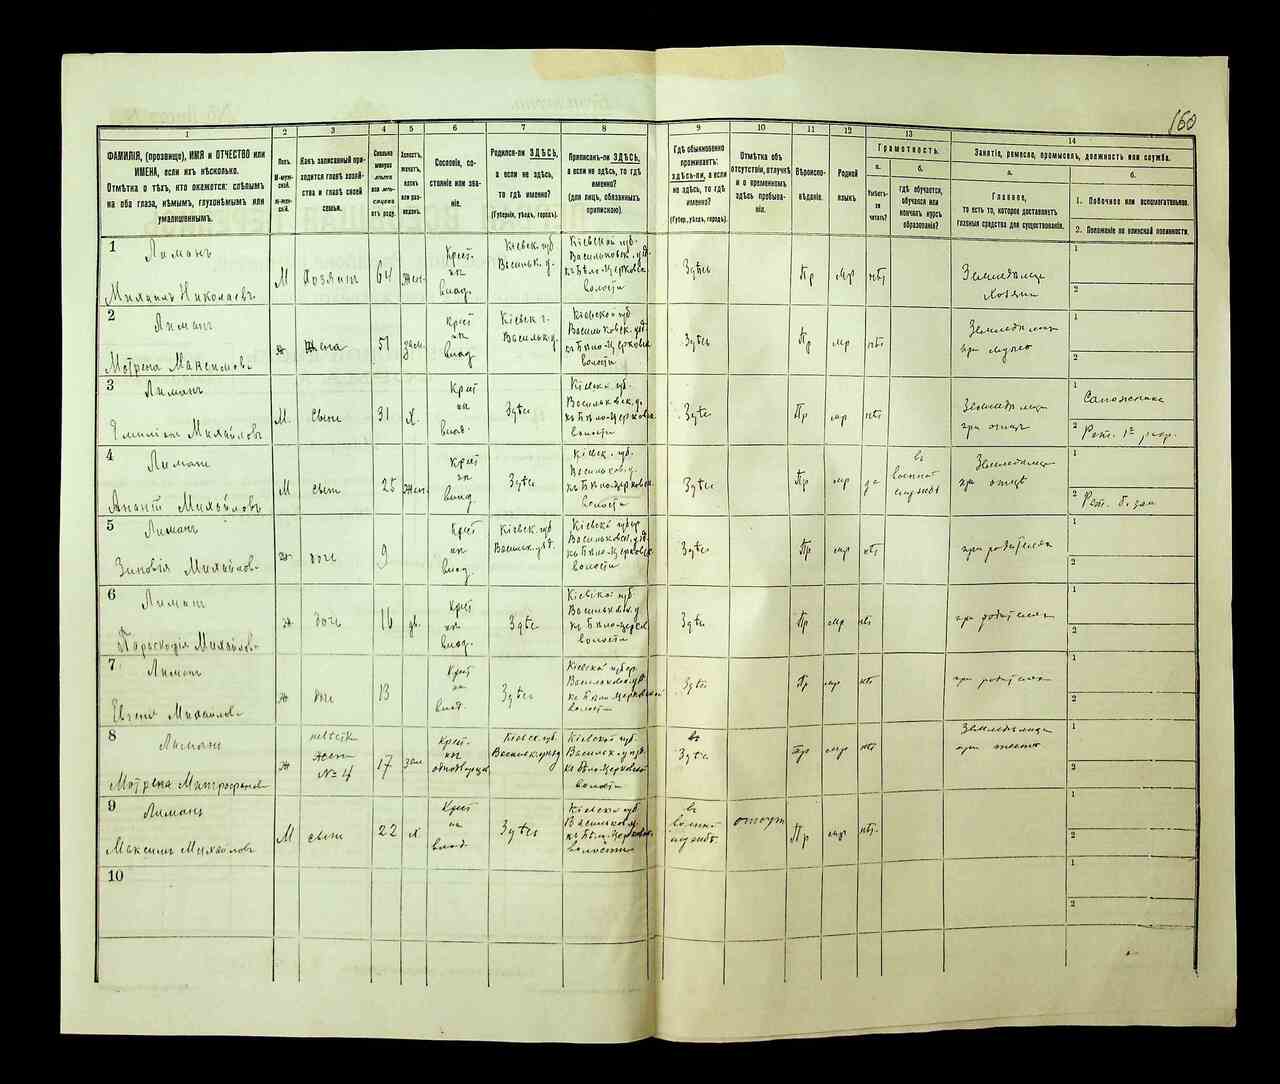 160
1
2
3
4
5
6
7
8
9
10
11
12
13
14
ФАМИЛІЯ, (прозвище), ИМЯ и ОТЧЕСТВО или
ИМЕНА, если ихъ нѣсколько.
Отмѣтка о тѣхъ, кто окажется: слѣпымъ
на оба глаза, нѣмымъ, глухонѣмымъ или
умалишеннымъ.
Полъ.
М-муж-
ской.
Ж-жен-
скій.
Какъ записанный при-
ходится главѣ хозяй-
ства и главѣ своей
семьи.
Сколько
минуло
лѣтъ
или мѣ-
сяцевъ
отъ роду.
Холостъ,
женатъ,
вдовъ
или раз-
веденъ.
Сословіе, со-
стояніе или зва-
ніе.
Родился-ли ЗДѢСЬ,
а если не здѣсь,
то гдѣ именно?
(Губернія, уѣздъ, городъ).
Приписанъ-ли ЗДѢСЬ,
а если не здѣсь, то гдѣ
именно?
(для лицъ, обязанныхъ
припискою).
Гдѣ обыкновенно
проживаетъ:
здѣсь-ли, а если
не здѣсь, то гдѣ
именно?
(Губер., уѣздъ, городъ).
Отмѣтка объ
отсутствіи, отлучкѣ
и о временномъ
здѣсь пребыва-
ніи.
Вѣроиспо-
вѣданіе.
Родной
языкъ
Грамотность.
а.
Умѣетъ-
ли
читать?
б.
гдѣ обучается,
обучался или
кончилъ курсъ
образованія?
Занятіе, ремесло, промыселъ, должность или служба.
а.
Главное,
то есть то, которое доставляетъ
главныя средства для существованія.
б.
1. Побочное или вспомогательное.
2. Положеніе по воинской повинности.
1
Лиманъ
Михаилъ Николаевъ
М
Хозяинъ
64
Жен.
Крест.
Кіевск. губ.
Васильк. у.
Кіевской губ.
Васильковск. уѣзд.
къ Бѣло-Церковск.
волости
Здѣсь
Пр
мр
нѣтъ
Хозяинъ
1
2
2
Лиманъ
Мотрена Максимова
ж
Жена
51
зам.
Крест
Кіевск г.
Васильк. у.
Кіевской губ
Васильковск. уѣзд.
къ Бѣло-Церковск
волости
Здѣсь
Пр
мр
нѣтъ
при мужѣ
1
2
3
Лиманъ
Михайловъ
М.
сынъ
31
Х.
Крест
Здѣсь
Кіевск. губ.
Васильковск. у.
къ Бѣло-Церковск
волости
Здѣсь
Пр
мр
нѣтъ
при отцѣ
1
2
Рат. 1го разр.
4
Лиманъ
Ананій Михайловъ
М
сынъ
25
Жен.
Крест
Здѣсь
Кіевск. губ.
Васильков. у.
къ Бѣло-Церковск.
волости
Здѣсь
Пр
мр
да
въ
военной
службѣ
при отцѣ
1
2
5
Лиманъ
Зиновія Михайлов-
ж
дочь
9
Крест
Кіевск. губ
Васильк. уѣзд.
Кіевск губер
Васильковск. уѣзд.
къ Бѣло-Церковск.
волости
Здѣсь
Пр
мр
нѣтъ
при родителяхъ
1
2
6
Лиманъ
Параскофія Михайлов-
ж
дочь
16
дѣ.
Крест
Здѣсь
Кіевской губ
Васильковск. у
къ Бѣло-Церков
волости
Здѣсь
Пр
мр
нѣтъ
при родителяхъ
1
2
7
Лиманъ
Евгенія Михайлов
ж
дочь
13
Крест
Здѣсь
Кіевской губер.
Васильковск. у.
къ Бѣло Церковской
волости
Здѣсь
Пр
мр
нѣтъ
при родителях
1
2
8
Лиманъ
Мотрена Митрофанов
ж
невѣстк
жена
№ 4
17
зам
Крест.
Кіевск. губ.
Кіевской губ.
Васильк. уѣзд.
къ Бѣло-Церковской
волости
Здѣсь
Пр
мр
нѣтъ
1
2
9
Лиманъ
Максимъ Михайловъ
М
сынъ
22
х
Крест
Здѣсь
Кіевской губ
Васильков. у.
къ Бѣло-Церковск.
волости
въ
военной
службѣ.
отсут
Пр
мр
нѣт.
1
2
10
1
2